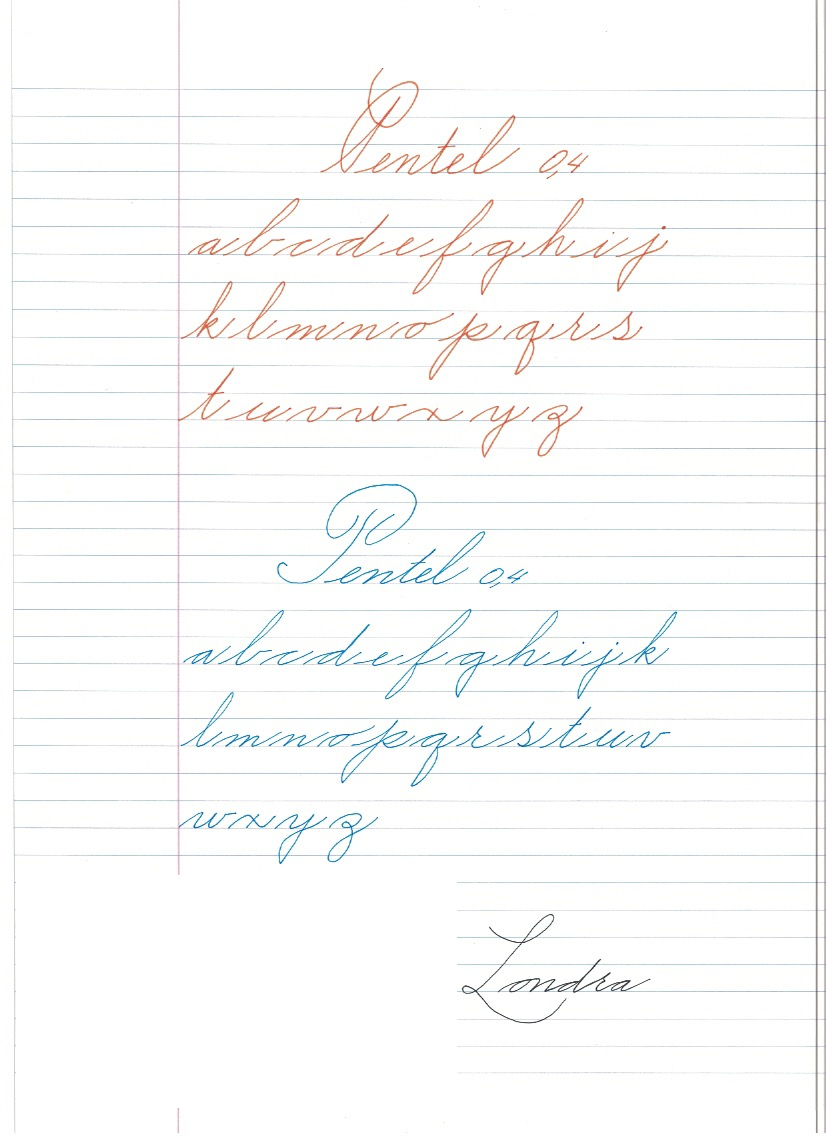 Pentel 0,4
abcdefghij
klmnopqrs
tuvwxyz
Pentel 0,4
abcdefghijk
lmnopqrstuv
wxyz
Londra